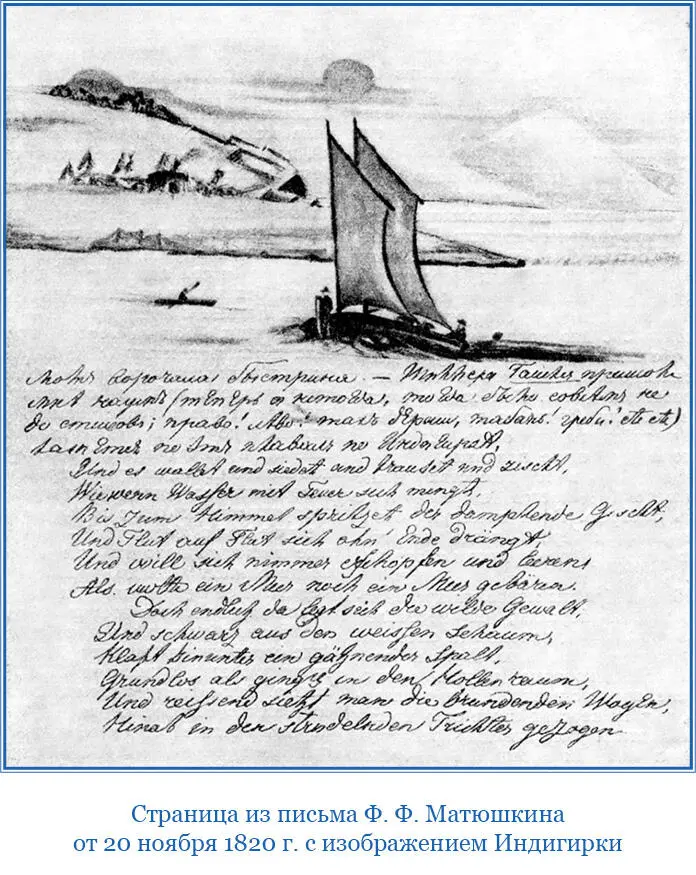 ворочала быстрина. —
(теперь тогда было совсѣмъ не
до стиховъ; право! лѣво! такъ держи, табань! греби! etc etc)
по Индигиркѣ,
Und es wallet und siedet und brauset und zischt,
Wie wenn Wasser mit Feuer sich mengt,
Bis zum Himmel spritzet der dampfende Gischt,
Und Flut auf Flut sich ohn' Ende drängt,
Und will sich nimmer erschöpfen und leeren,
Als wollte ein Meer noch ein Meer gebären.
Doch endlich da legt sich die wilde Gewalt,
Und schwarz aus den weissen Schaum,
Klaft hinunter ein gähnender Spalt,
Grundlos als ging's in den Höllenraum,
Und reissend sieht man die brandenden Wogen,
Hinab in den strudelnden Trichter gezogen
Страница из письма Ф. Ф. Матюшкина
от 20 ноября 1820 г. с изображением Индигирки